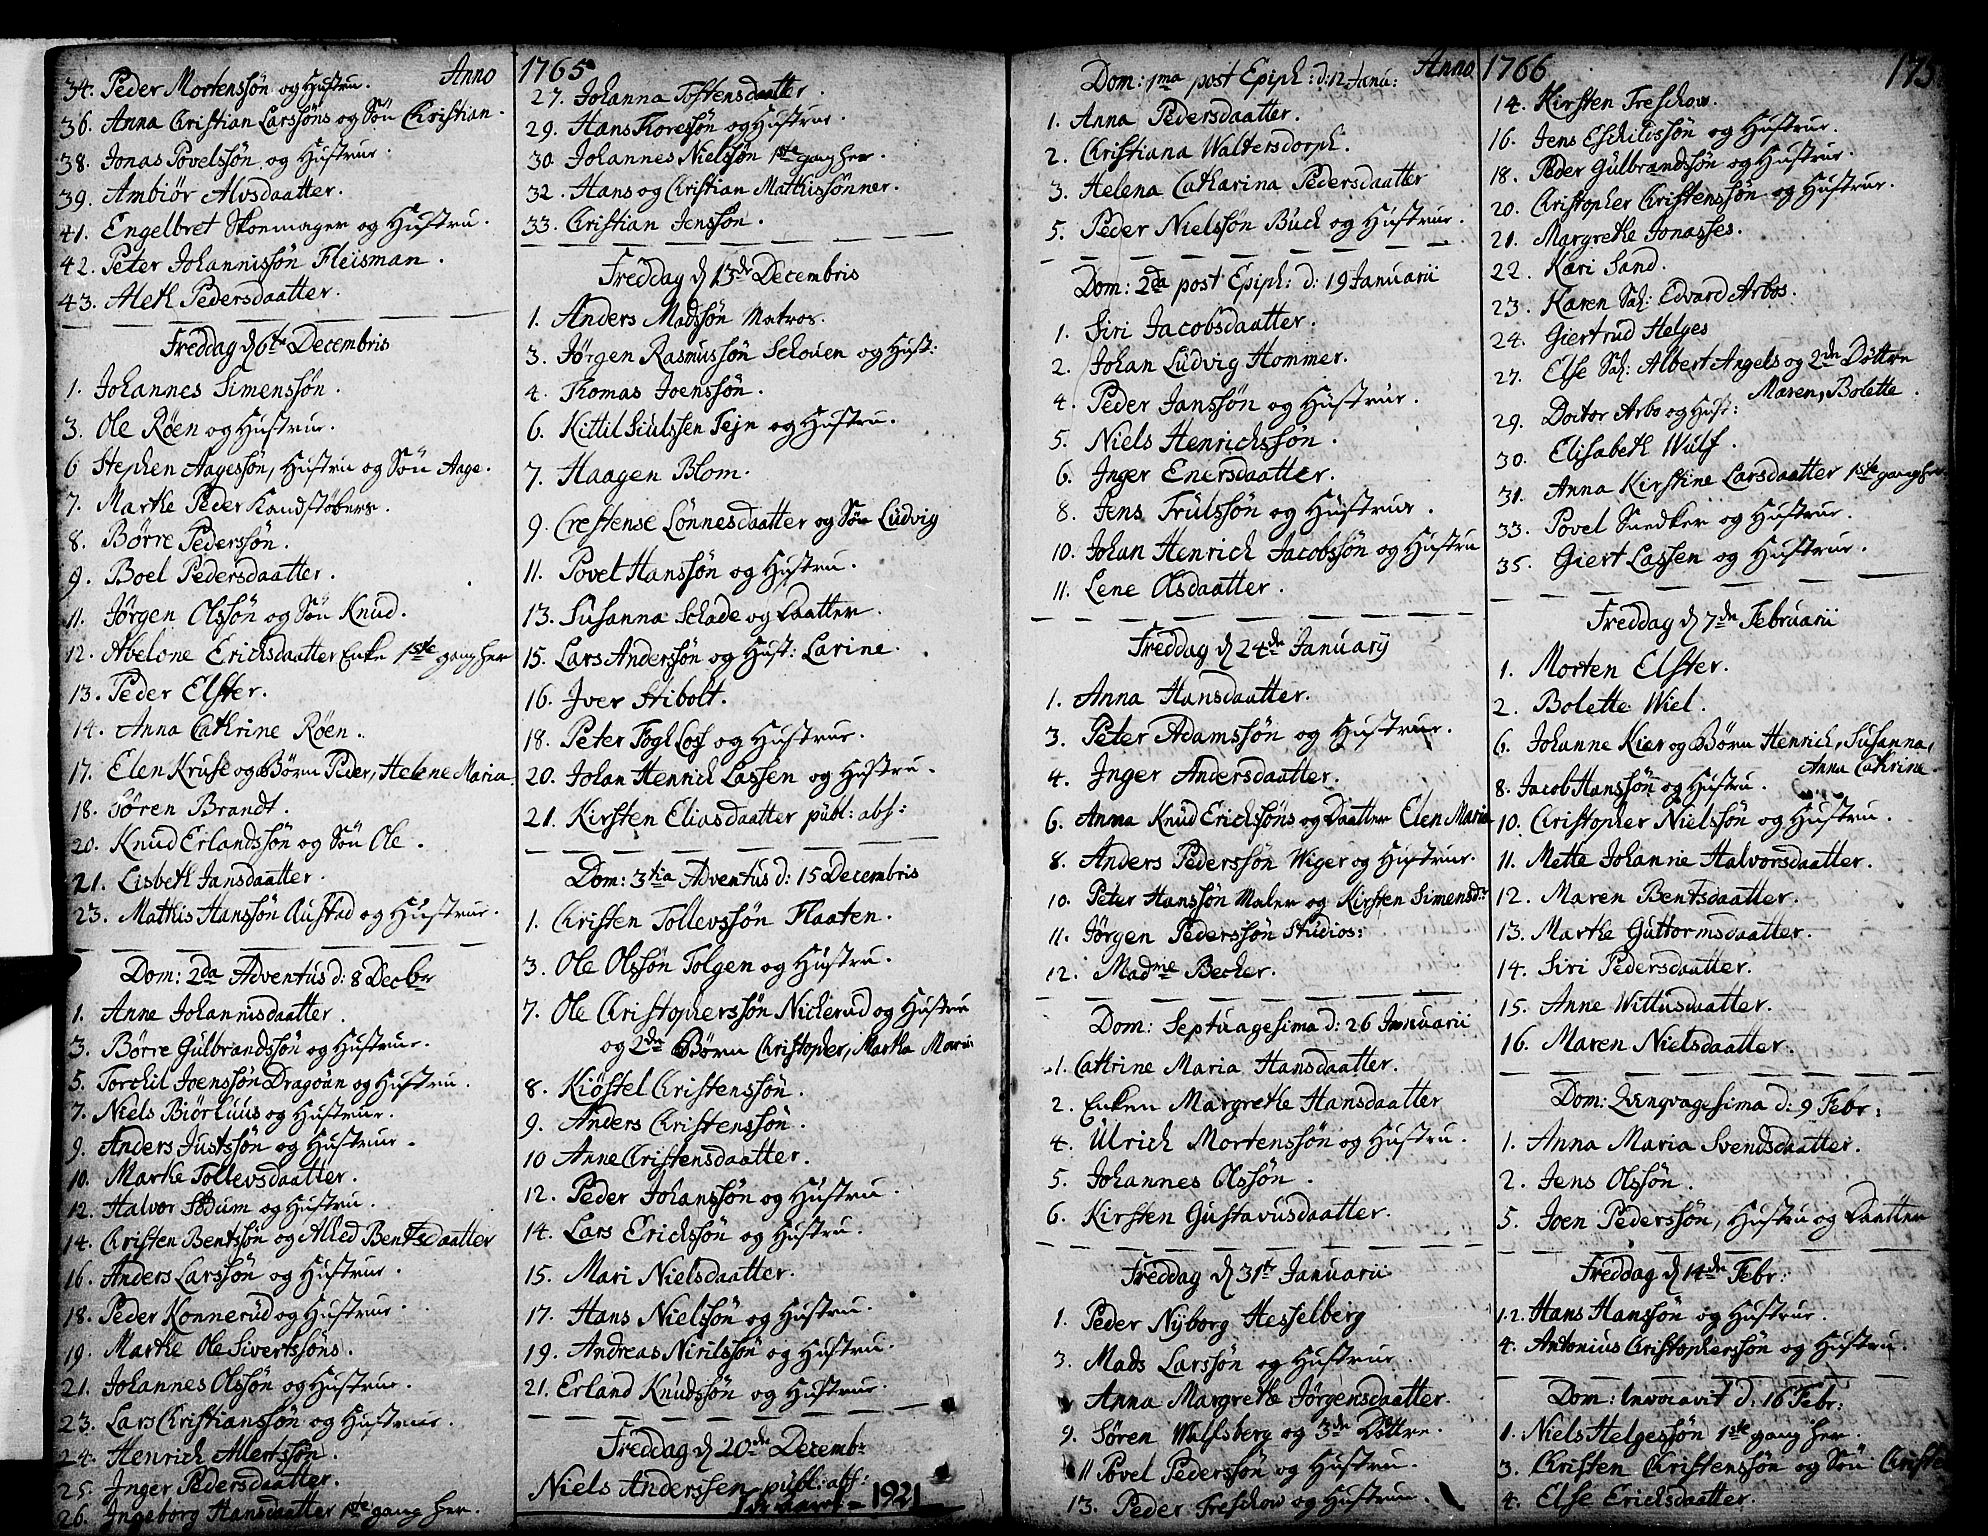 Anno 1765
34. Peder Mortenssøn og Hustru.
36. Anna Christian Larssøns og Søn Christian.
38. Jonas Povelssøn og Hustrue.
39. Ambiör Alvsdaatter.
41. Engelbret Skoemager og Hustru.
42. Peter Johannissøn Fleisman.
43. Aleth Pedersdaatter.
Freddag d 6te Decembris
1. Johannes Simenssøn.
3. Ole Røen og Hustrue.
6 Stephen Aagessøn, Hustru og Søn Aage.
7. Marthe Peder Kandstøbers.
8. Børre Pederssøn.
9. Boel Pedersdaatter.
11. Jørgen Olssøn og Søn Knud.
12. Abelone Ericksdaatter Enke 1ste gang her
13. Peder Elster.
14. Anna Cathrine Røen.
17. Elen Kruse og Børn Peder, Helene Maria
18. Søren Brandt.
20. Knud Erlandssøn og Søn Ole.
21. Lisbeth Jansdaatter.
23. Mathis Hanssøn Rustad og Hustrue.
Dom: 2da Adventus d: 8 Decbr
1. Anne Johannisdaatter.
3. Børre Gulbrandssøn og Hustrue.
5. Torchil Joenssøn Dragoun og Hustru.
7. Niels Biørluus og Hustrue.
9. Anders Justssøn og Hustrue.
10. Marthe Tollevsdaatter.
12. Halvor Sødum og Hustru.
14. Christen Bentssøn og Alled Bentsdaatter
16. Anders Larssøn og Hustrue.
18. Peder Konnerud og Hustrue.
19. Marthe Ole Sivertssøns.
21. Johannes Olssøn og Hustrue.
23. Lars Christianssøn og Hustrue.
24. Henrich Allertssøn.
25. Inger Pedersdaatter.
26. Ingeborg Hansdaatter 1ste gang her.
27. Johanna Tostensdaatter.
29. Hans Thoressøn og Hustrue.
30. Johannes Nielssøn 1ste gang her.
32. Hans og Christian Mathissønner.
33. Christian Jenssøn.
Freddag d 13de Decembris
1. Anders Madssøn Matros.
3. Jørgen Rasmussøn Schouen og Hust:
4. Thomas Joenssøn.
6. Kittil Siulssen Tejn og Hustru.
7. Haagen Blom.
9. Crestense Lønnesdaatter og Søn Ludvig
11. Povel Hanssøn og Hustru.
13. Susanna Schade og Daatter.
15. Lars Anderssøn og Hust: Larine.
16. Iver Stibolt.
18. Peter Fogl Cosf og Hustrue.
20. Johan Henrich Lassen og Hustru.
21. Kirsten Eliasdaatter publ: abs:
Dom: 3tia Adventus d: 15 Decembris
1. Christen Tollevssøn Flaaten.
3. Ole Olssøn Tolgen og Hustru.
7. Ole Christopherssøn Nickerud og Hustru
og 2de Børn Christopher, Martha Maria
8. Kiøstel Christenssøn.
9. Anders Christenssøn.
10 Anne Christensdaatter.
12. Peder Johanssøn og Hustru.
14. Lars Erickssøn og Hustru.
15. Mari Nielsdaatter.
17. Hans Nielssøn og Hustru.
19. Andreas Nirilssøn og Hustru.
21. Erland Knudssøn og Hustrue.
Freddag d 20de Decembr
Niels Anderssen publ: abs:
1921
Anno 1766
Dom: 1ma post Epiph: d: 12 Janu:
1. Anna Pedersdaatter.
2. Christiana Waltersdorph.
3. Helena Catharina Pedersdaatter
5. Peder Nielssøn Buch og Hustrue.
Dom: 2da post Epiph: d: 19 Januarii
1. Siri Jacobsdaatter.
2. Johan Ludvig Hommer.
4. Peder Janssøn og Hustrue.
5. Niels Henrichssøn.
6. Inger Enersdaatter.
8. Jens Trulssøn og Hustrue.
10. Johan Henrich Jacobssøn og Hustru
11. Lene Olsdaatter.
Freddag d 24de January
1. Anna Hansdaatter.
3. Peter Adamssøn og Hustrue.
4. Inger Andersdaatter.
6. Anna Knud Erickssøns og Daatter Elen Maria
8. Anders Pederssøn Wiger og Hustrue.
10. Peter Hanssøn Maler og Kirsten Simensdr
11. Jørgen Pederssøn Studios:
12. Madme Becher.
Dom: Septuagesima d: 26 Januarii
1. Cathrine Maria Hansdaatter.
2. Enken Margrethe Hansdaatter
4. Ulrich Mortenssøn og Hustru.
5. Johannes Olssøn.
6. Kirsten Gustavusdaatter.
Freddag d 31te Januarii
1. Peder Nyborg Hesselberg
3. Mads Larssøn og Hustrue.
Anna Margrethe Jørgensdaatter.
9. Søren Wulfsberg og 3de Døttre.
11 Povel Pederssøn og Hustru.
13. Peder Freschow og Hustru.
14. Kirsten Freschow.
16. Jens Eschildssøn og Hustrue.
18. Peder Gulbrandssøn og Hustrue.
20. Christopher Christenssøn og Hustrue.
21. Margrethe Jonasses.
22. Kari Sand.
23. Karen Sal: Edvard Arbos.
24. Giertrud Helges
27. Else Sal: Albert Angels og 2de Døttre
Maren, Bolette.
29. Doctor Arbo og Hust:
30. Elisabeth Wulf.
31. Anna Kirstine Larsdaatter 1ste gang her
33. Povel Snedker og Hustrue.
35. Giert Lassen og Hustrue.
Freddag d 7de Februarii
1. Morten Elster.
2. Bolette Wiel.
6. Johanne Kier og Børn Henrich, Susanna,
Anna Cathrine.
8. Jacob Hanssøn og Hustru.
10. Christopher Nielssøn og Hustru.
11. Mette Johanne Halvorsdaatter.
12. Maren Bentsdaatter.
13. Marthe Guttormsdaatter.
14. Siri Pedersdaatter.
15. Anne Wittusdaatter.
16. Maren Nielsdaatter.
Dom: Qvinqvagesima d: 9 Febr:
1. Anna Maria Svendsdaatter.
2. Jens Olssøn.
5. Joen Pederssøn, Hustru og Daatter
Freddag d 14de Febr:
1.2. Hans Hanssøn og Hustrue.
4. Antonius Christopherssøn og Hustru.
Dom: Invocavit d. 16 Febr:
1. Niels Helgessøn 1ste gang her.
3. Christen Christenssøn og Søn
4. Else Ericksdaatter.